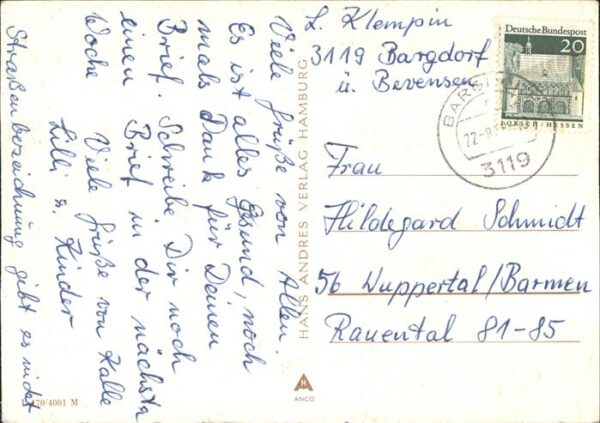 Viele Grüße von Allen.
Es ist alles Gesund, noch
mals Dank für Deinen
Brief. Schreibe Dir noch
einen Brief in der nächste
Woche
Viele Grüße von Kalle
Lilli u. Kinder
Straßenbezeichnung gibt es nicht
L. Klempin
3119 Bargdorf
ü. Bevensen
Deutsche Bundespost
20
LORSCH/HESSEN
22-8
3119
Frau
Hildegard Schmidt
56 Wuppertal/Barmen
Rauental 81-85
HANS ANDRES VERLAG HAMBURG
ANCO
170/4001 M